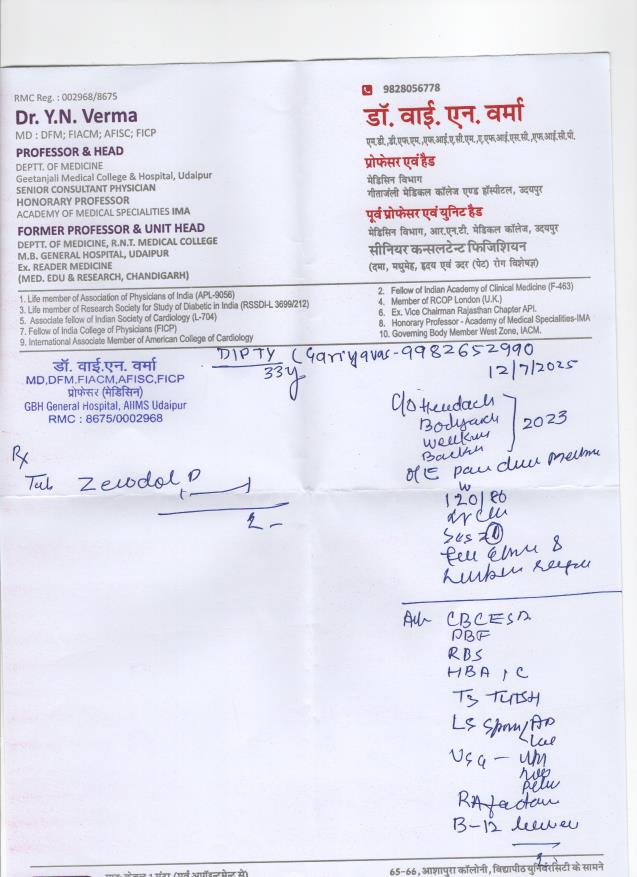 RMC Reg. : 002968/8675
Dr. Y.N. Verma
MD : DFM; FIACM; AFISC; FICP
PROFESSOR & HEAD
DEPTT. OF MEDICINE
Geetanjali Medical College & Hospital, Udaipur
SENIOR CONSULTANT PHYSICIAN
HONORARY PROFESSOR
ACADEMY OF MEDICAL SPECIALITIES IMA
FORMER PROFESSOR & UNIT HEAD
DEPTT. OF MEDICINE, R.N.T. MEDICAL COLLEGE
M.B. GENERAL HOSPITAL, UDAIPUR
Ex. READER MEDICINE
(MED. EDU & RESEARCH, CHANDIGARH)
9828056778
डॉ. वाई. एन. वर्मा
एम.डी.,डी.एफ.एम.,एफ.आई.ए.सी.एम.,ए.एफ.आई.एस.सी.,एफ.आई.सी.पी.
प्रोफेसर एवं हैड
मेडिसिन विभाग
गीतांजली मेडिकल कॉलेज एण्ड हॉस्पीटल, उदयपुर
पूर्व प्रोफेसर एवं युनिट हैड
मेडिसिन विभाग, आर.एन.टी. मेडिकल कॉलेज, उदयपुर
सीनियर कन्सलटेन्ट फिजिशियन
(दमा, मधुमेह, हृदय एवं उदर (पेट) रोग विशेषज्ञ)
1. Life member of Association of Physicians of India (APL-9056)
3. Life member of Research Society for Study of Diabetic in India (RSSDI-L 3699/212)
5. Associate fellow of Indian Society of Cardiology (L-704)
7. Fellow of India College of Physicians (FICP)
9. International Associate Member of American College of Cardiology
2. Fellow of Indian Academy of Clinical Medicine (F-463)
4. Member of RCOP London (U.K.)
6. Ex. Vice Chairman Rajasthan Chapter API.
8. Honorary Professor - Academy of Medical Specialities-IMA
10. Governing Body Member West Zone, IACM.
डॉ. वाई.एन. वर्मा
MD,DFM,FIACM,AFISC,FICP
प्रोफेसर (मेडिसिन)
GBH General Hospital, AIIMS Udaipur
RMC : 8675/0002968
DIPTY (Gariyavas-9982652990
33y
12/7/2025
C/O Headach
Bodyach
2023
O/E
120/80
Rx
Tab Zerodol P
Adv CBC ESR
PBF
RBS
HBA1C
T3 T4 TSH
LS Spine/AP
Lat
USG -
RA factor
B-12
65-66, आशापुरा कॉलोनी, विद्यापीठ युनिवरसिटी के सामने